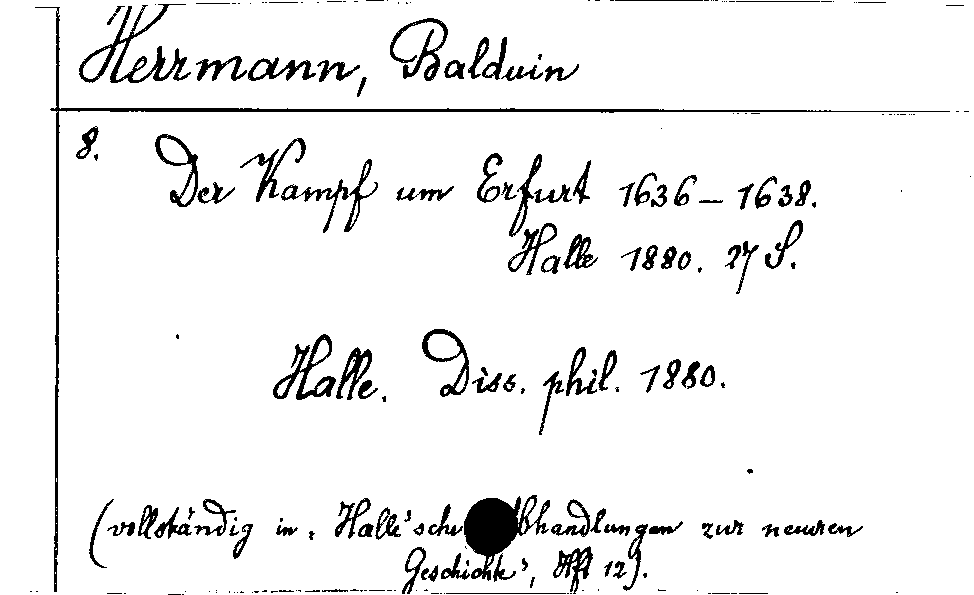 Herrmann, Balduin
8.
Der Kampf um Erfurt 1636–1638.
Halle 1880. 27 S.
Halle. Diss. phil. 1880.
(vollständig in: Halle'sche Abhandlungen zur neueren
Geschichte', Hft 12).